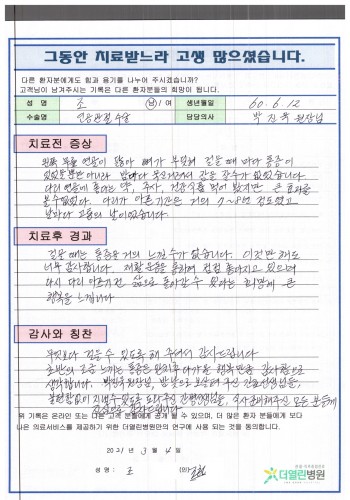 그동안 치료받느라 고생 많으셨습니다.
다른 환자분에게도 힘과 용기를 나누어 주시겠습니까?
고객님이 남겨주시는 기록은 다른 환자분들의 희망이 됩니다.
성 명 조 남 / 여 생년월일 60. 6. 12
수술명 인공관절수술 담당의사 박진욱 원장님
치료전 증상
왼쪽 무릎 연골이 닳아 뼈가 부딪혀 걸을때 마다 통증이
있었을뿐만 아니라 밤마다 욱신거려서 잠을 잘수가 없었습니다
다리 연골에 좋다는 약, 주사, 건강식품 먹어 봤지만 큰 효과를
볼수없었다. 다리가 아픈기간은 거의 7~8년 정도였고
날마다 고통의 날이였습니다.
치료후 경과
걸을 때는 통증을 거의 느낄수가 없습니다. 이것만 해도
너무 감사합니다. 재활운동을 통하여 점점 좋아지고 있으며
다시 다리 아프기전 삶으로 돌아갈수 있다는 희망에 큰
행복을 느낍니다.
감사와 칭찬
무엇보다 걸을수 있도록 해 주셔서 감사드립니다
초반의 조금 느끼는 통증은 완치후 다가올 행복만을 감사함으로
생각합니다. 박진욱원장님, 밤낮으로 보살펴 주신 간호선생님들,
불편함없이 지낼수있도록 도와주신 간병선생님들, 식사준비해주신 모든 분들께
진심으로 감사드립니다
위 기록은 온라인 또는 다른 고객 분들에게 공개 될 수 있으며, 더 많은 환자 분들에게 보다
나은 의료서비스를 제공하기 위한 더열린병원만의 연구에 사용 되는 것을 동의합니다.
2021 년 3 월 4 일
성 명 : 조 (인)
더열린병원